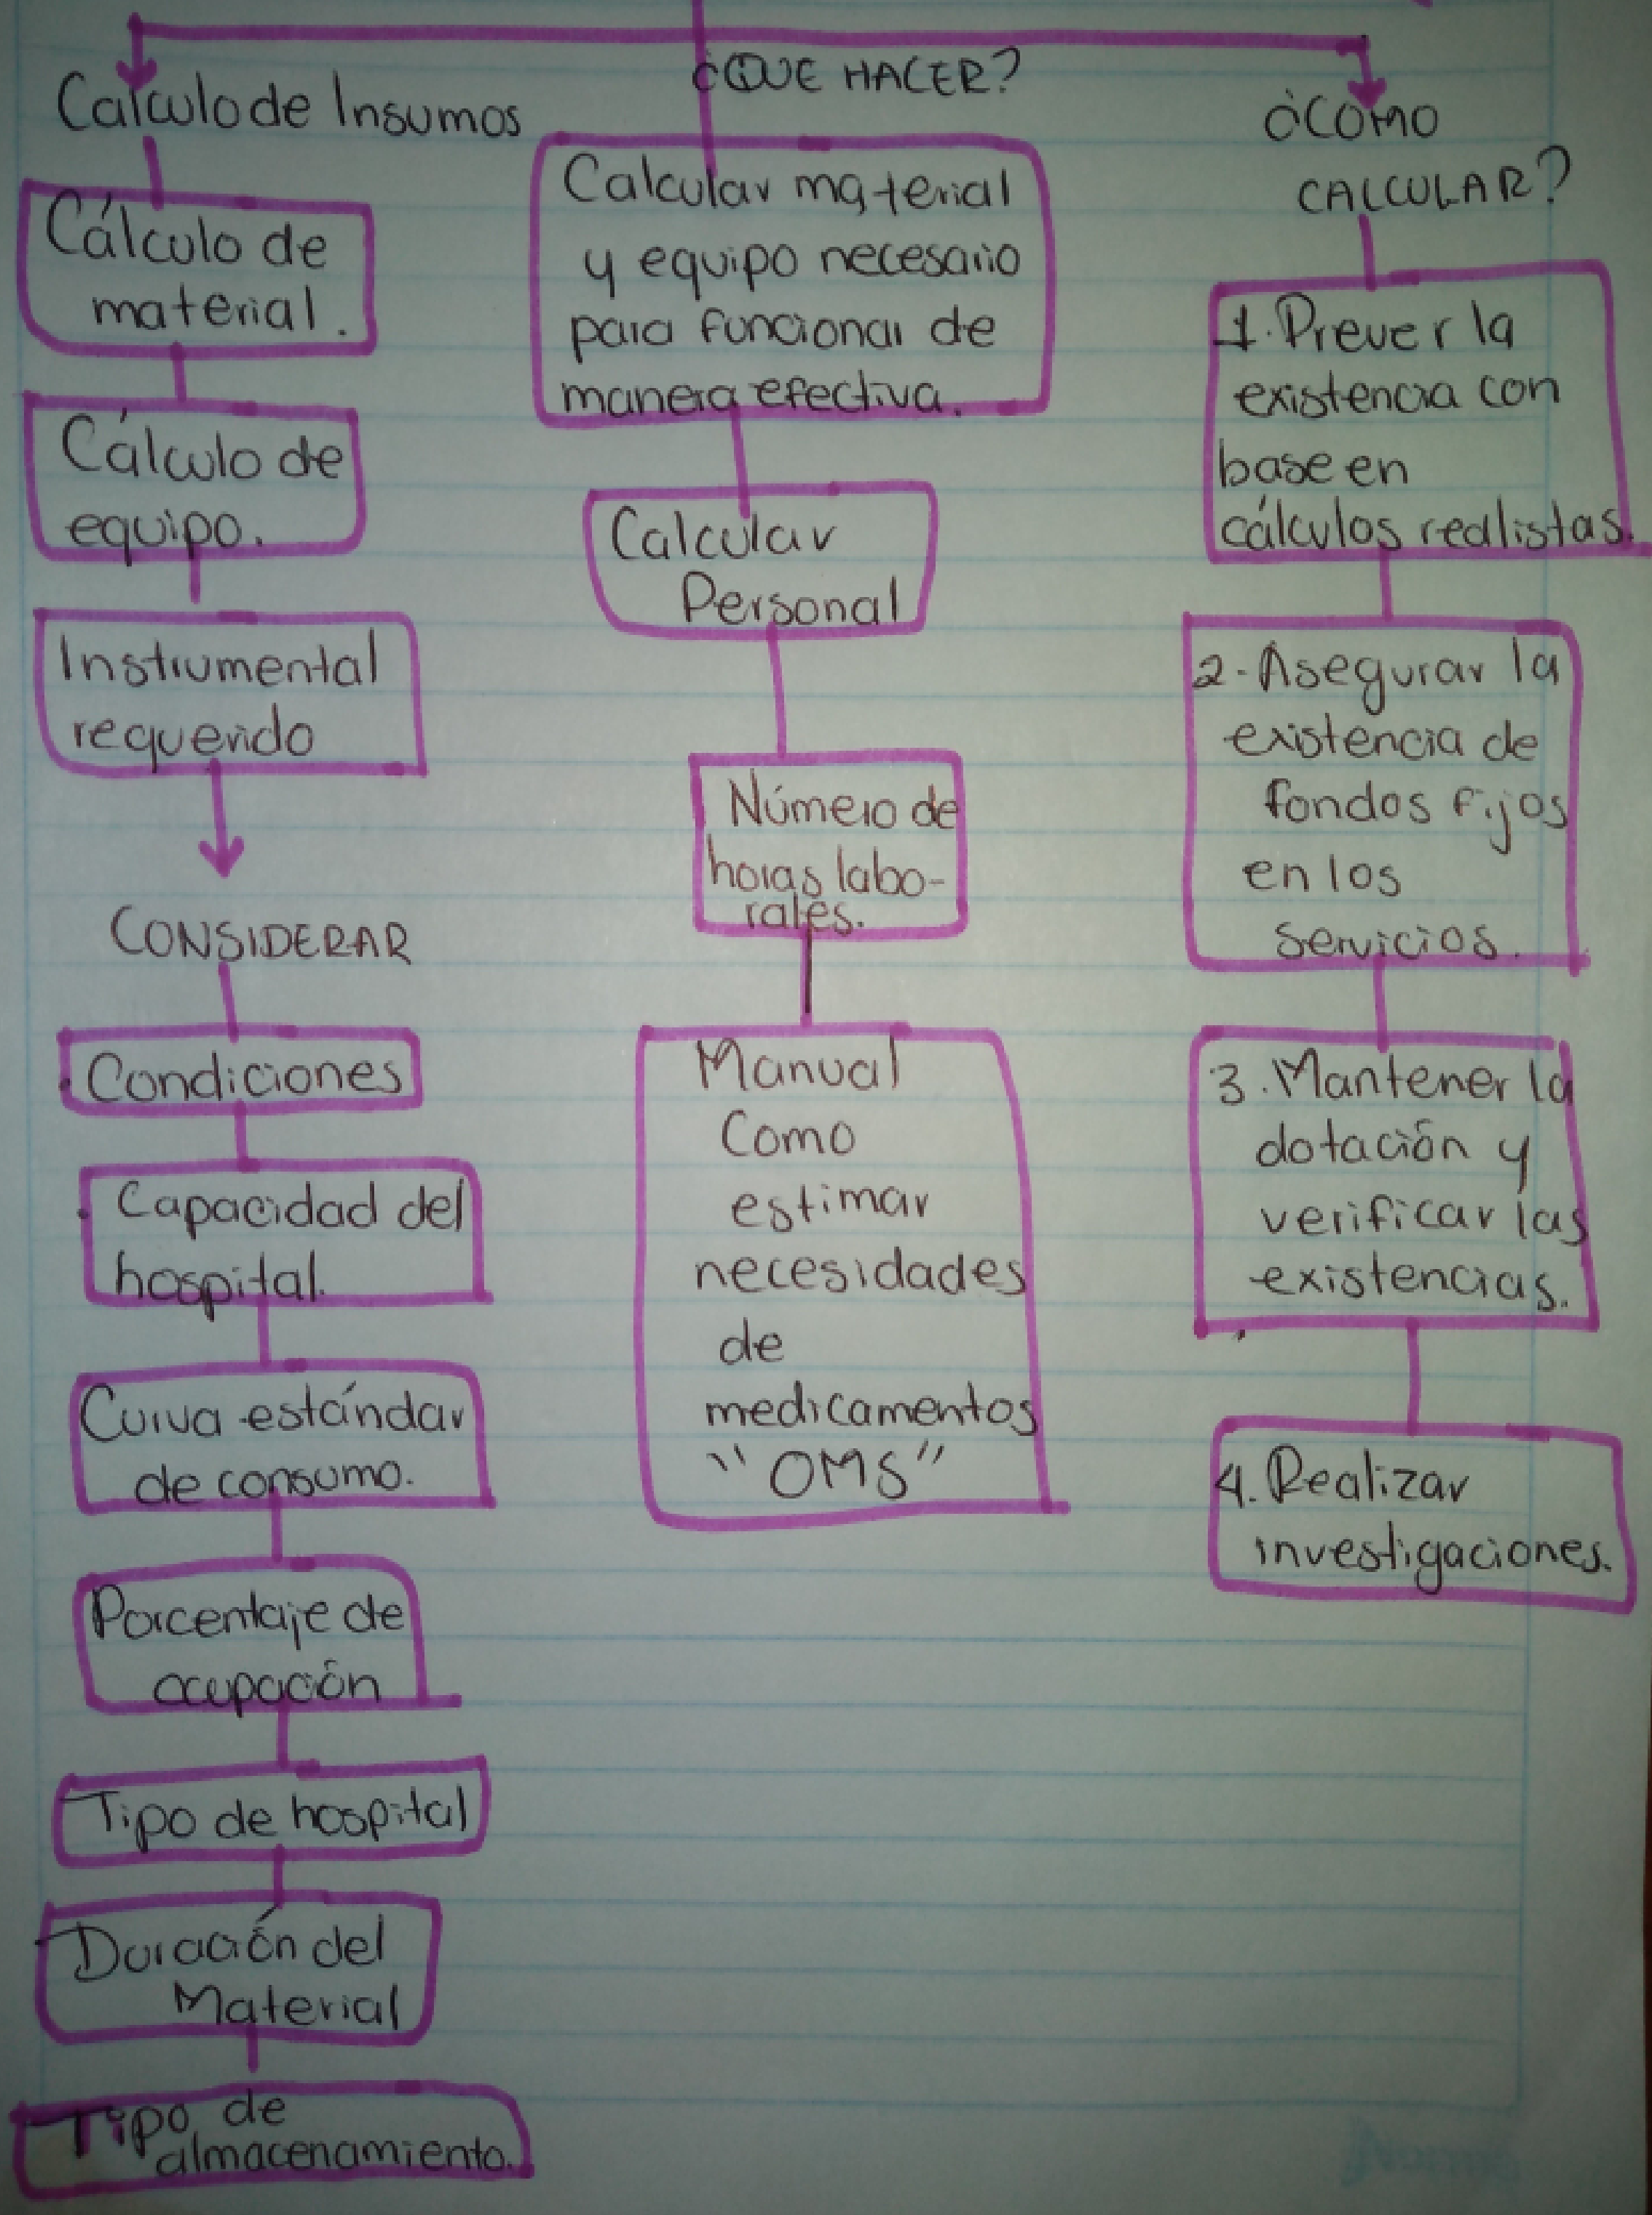 Calculo de Insumos
Cálculo de
material.
Cálculo de
equipo.
Instrumental
requerido
CONSIDERAR
Condiciones
Capacidad del
hospital.
Curva estándar
de consumo.
Porcentaje de
ocupación
Tipo de hospital
Duración del
Material
Tipo de
almacenamiento.
¿QUE HACER?
Calcular material
y equipo necesario
para funcionar de
manera efectiva.
Calcular
Personal
Número de
horas labo-
rales.
Manual
Como
estimar
necesidades
de
medicamentos
"OMS"
¿COMO
CALCULAR?
1. Prever la
existencia con
base en
cálculos realistas.
2- Asegurar la
existencia de
fondos fijos
en los
servicios.
3. Mantener la
dotación y
verificar las
existencias.
4. Realizar
investigaciones.